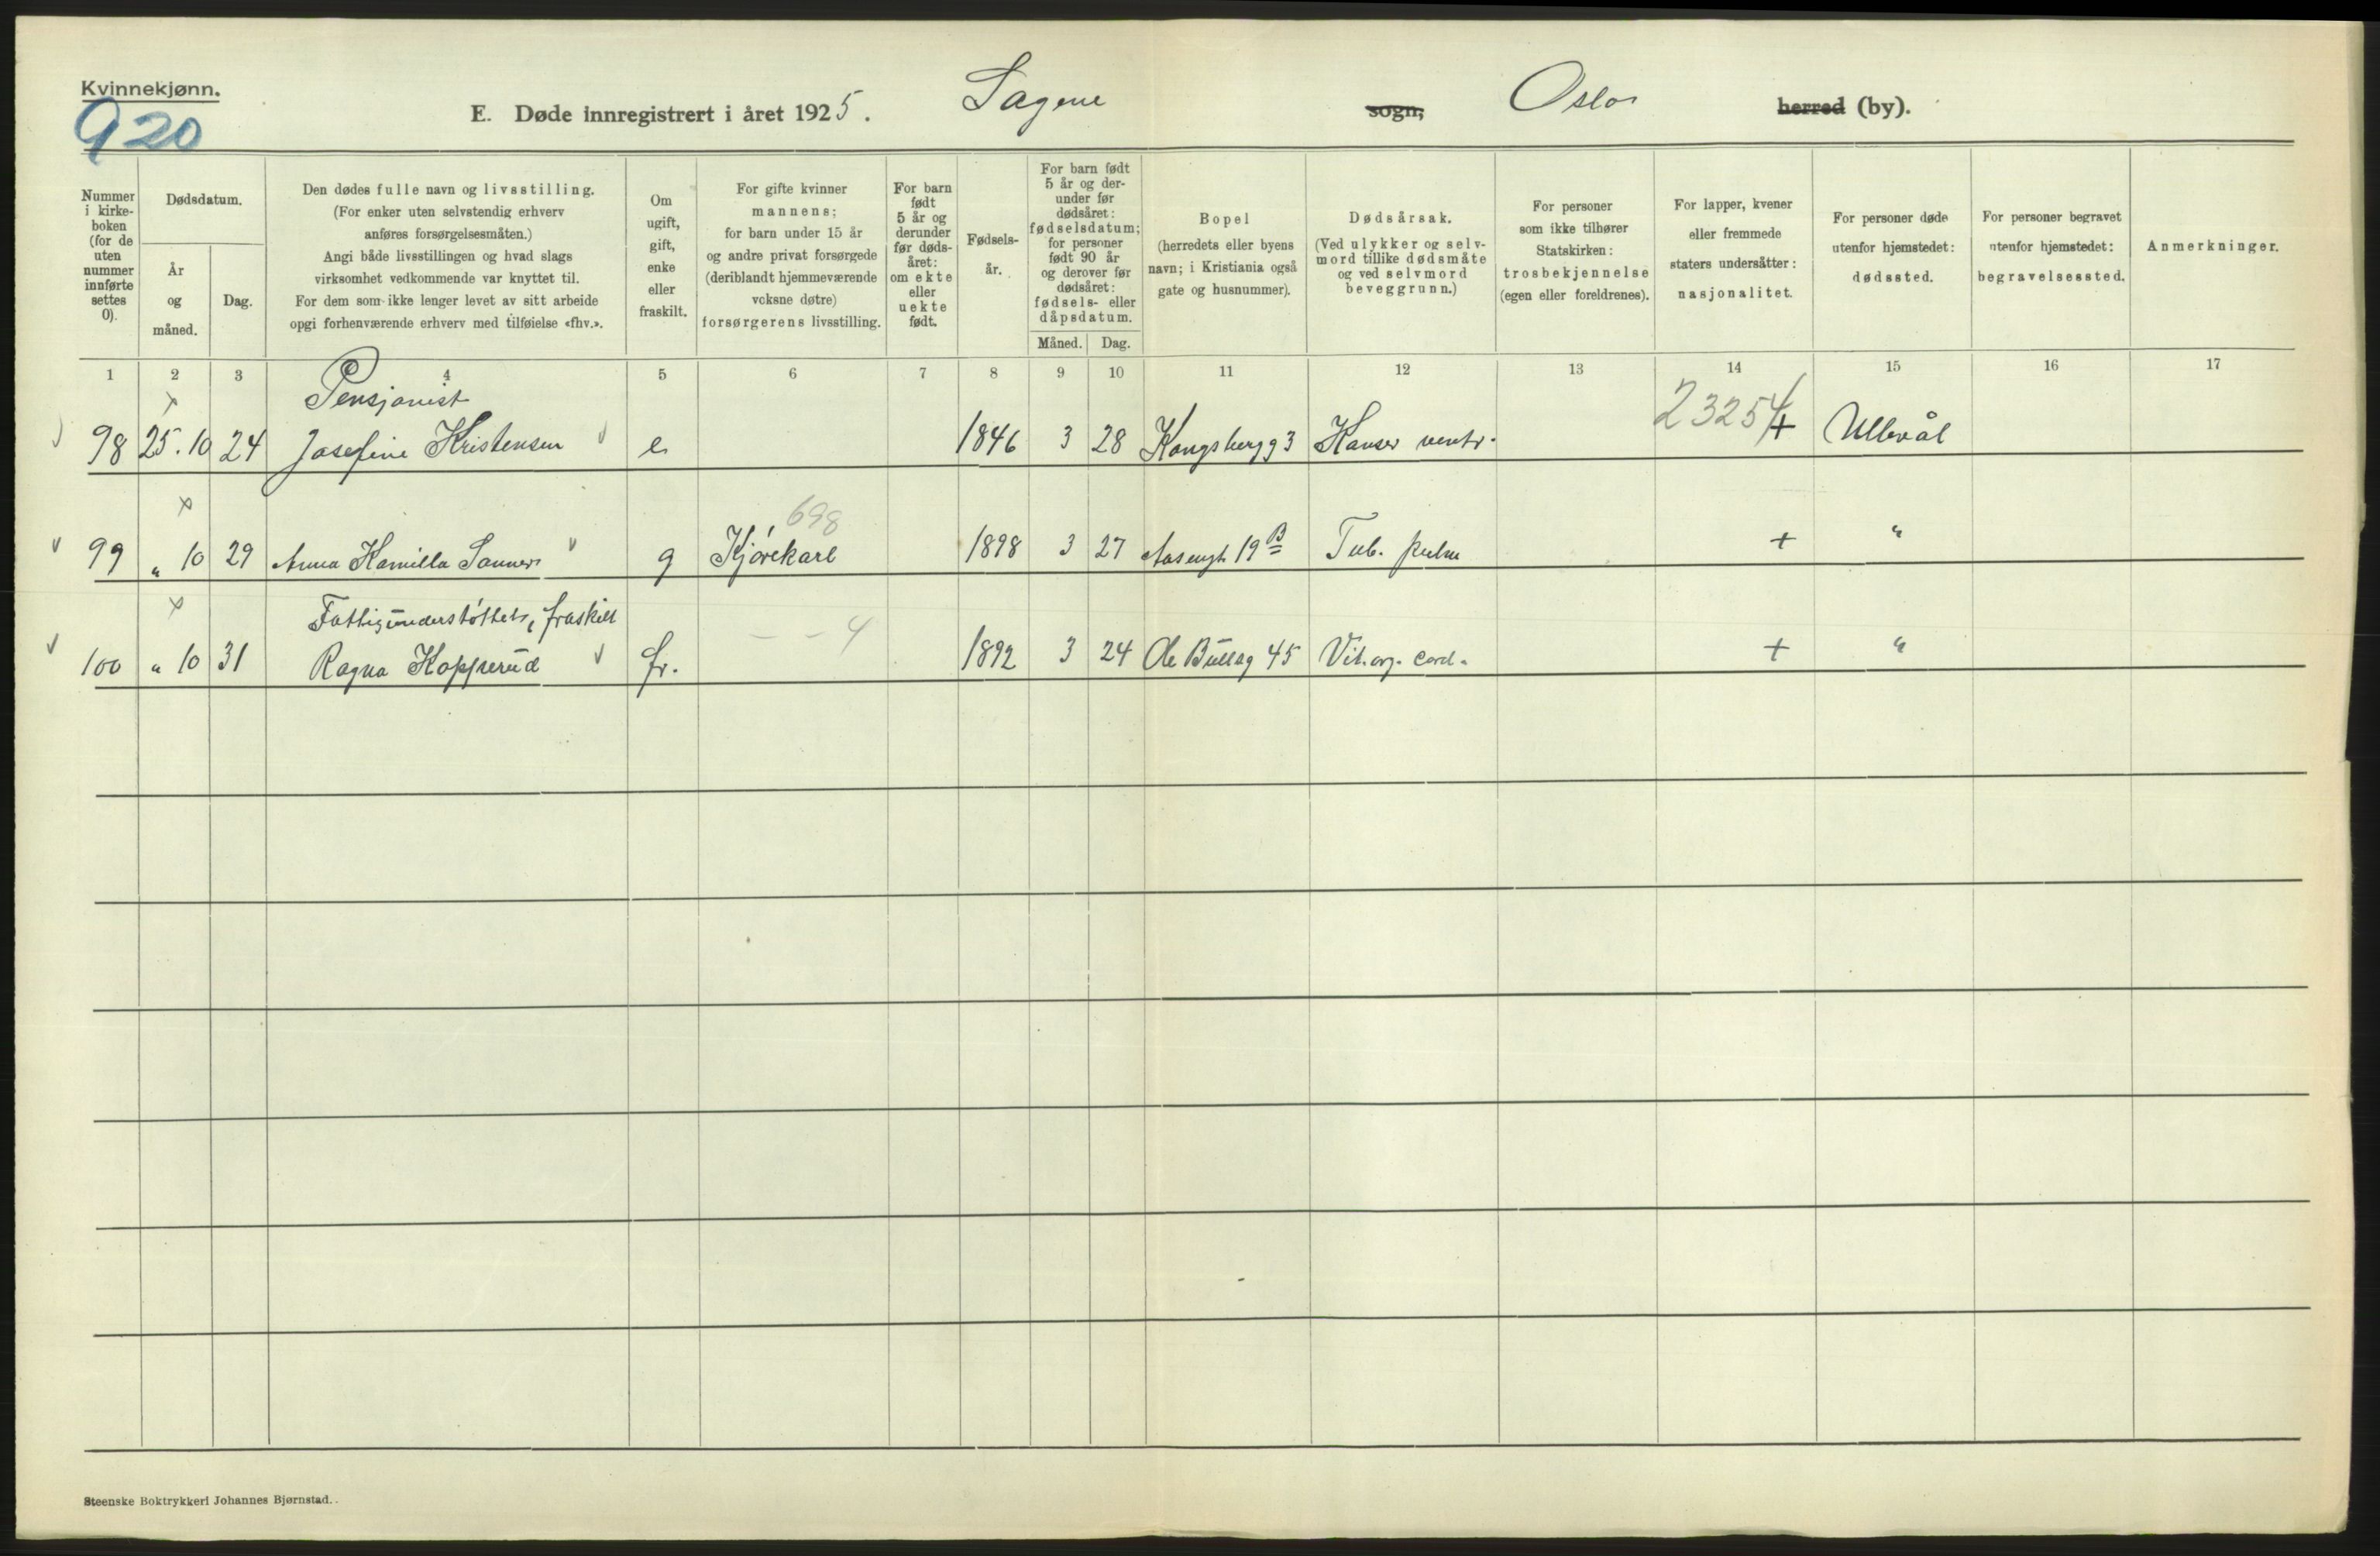 Kvinnekjønn.
920
E. Døde innregistrert i året 1925. Sagene sogn, Oslo herred (by).
Nummer i kirkeboken (for de uten nummer innførte settes 0).
Dødsdatum.
År og måned.
Dag.
Den dødes fulle navn og livsstilling.
(For enker uten selvstendig erhverv
anføres forsørgelsesmåten.)
Angi både livsstillingen og hvad slags
virksomhet vedkommende var knyttet til.
For dem som ikke lenger levet av sitt arbeide
opgi forhenværende erhverv med tilføielse «fhv.».
Om ugift, gift, enke eller fraskilt.
For gifte kvinner
mannens;
for barn under 15 år
og andre privat forsørgede
(deriblandt hjemmeværende
voksne døtre)
forsørgerens livsstilling.
For barn født 5 år og derunder før dødsåret: om ekte eller uekte født.
Fødselsår.
For barn født
5 år og derunder før
dødsåret:
fødselsdatum;
for personer
født 90 år
og derover før
dødsåret:
fødsels- eller
dåpsdatum.
Måned. Dag.
Bopel
(herredets eller byens
navn; i Kristiania også
gate og husnummer).
Dødsårsak.
(Ved ulykker og selvmord tillike dødsmåte
og ved selvmord
beveggrunn.)
For personer
som ikke tilhører
Statskirken:
trosbekjennelse
(egen eller foreldrenes).
For lapper, kvener
eller fremmede
staters undersåtter:
nasjonalitet.
For personer døde
utenfor hjemstedet:
dødssted.
For personer begravet
utenfor hjemstedet:
begravelsessted.
Anmerkninger.
1 2 3 4 5 6 7 8 9 10 11 12 13 14 15 16 17
x Pensjonist 23254
98 25.10 24 Josefine Kristensen e 1846 3 28 Kongsbergg 3 Kanser ventr. + Ullevål
x 698
99 „ 10 29 Anna Kamilla Sanner g Kjørekarl 1898 3 27 Aasengt. 19 B Tub. pulm + "
x Fattigunderstøttet, fraskilt
100 „ 10 31 Ragna Kopperud fr. – – 4 1892 3 24 Ole Bullsg 45 Vit. org. cord. + "
Steenske Boktrykkeri Johannes Bjørnstad.